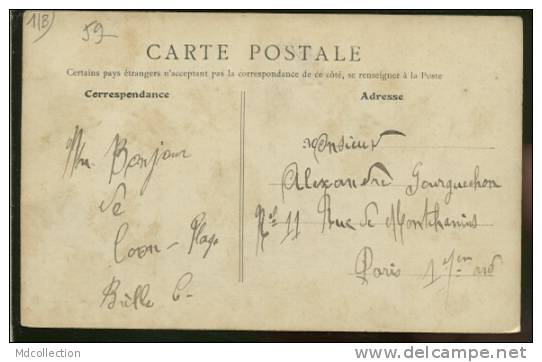 1/B
59
CARTE POSTALE
Certains pays étrangers n'acceptant pas la correspondance de ce côté, se renseigner à la Poste
Correspondance
Adresse
Un Bonjour
de
Loon-Plage
Monsieur
Alexandre Gourguechon
N° 11 Rue de Montchanin
Paris
Mdcollection
www.delcampe.net